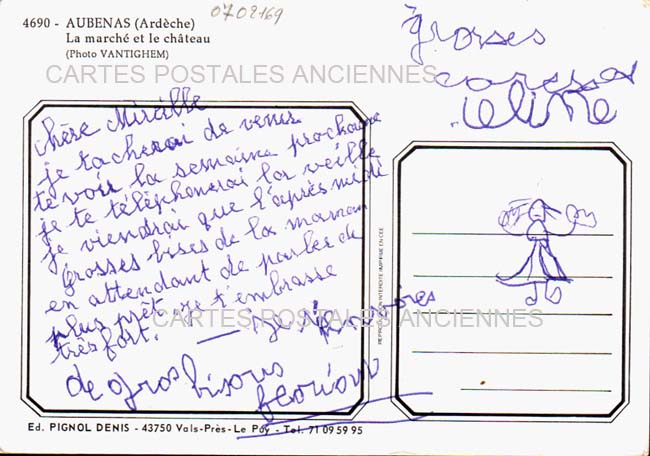 0702169
4690 - AUBENAS (Ardèche)
La marché et le château
(Photo VANTIGHEM)
CARTES POSTALES ANCIENNES
grosses
caresses
céline
chère Mireille
je tacherai de venir
te voir la semaine prochaine
je te téléphonerai la veille
je viendrai que l'après midi
Grosses bises de la maman
en attendant de parler de
plus prêt je t'embrasse
très fort.
CARTES POSTALES ANCIENNES
de gros bisous
florian
REPRODUCTION INTERDITE IMPRIMÉ EN CEE
Ed. PIGNOL DENIS - 43750 Vals-Près-Le Puy - Tel. 71 09 59 95